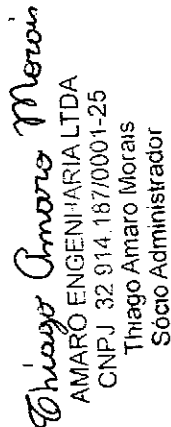 Thiago Amaro Morais
AMARO ENGENHARIA LTDA
CNPJ 32.914.187/0001-25
Thiago Amaro Morais
Sócio Administrador